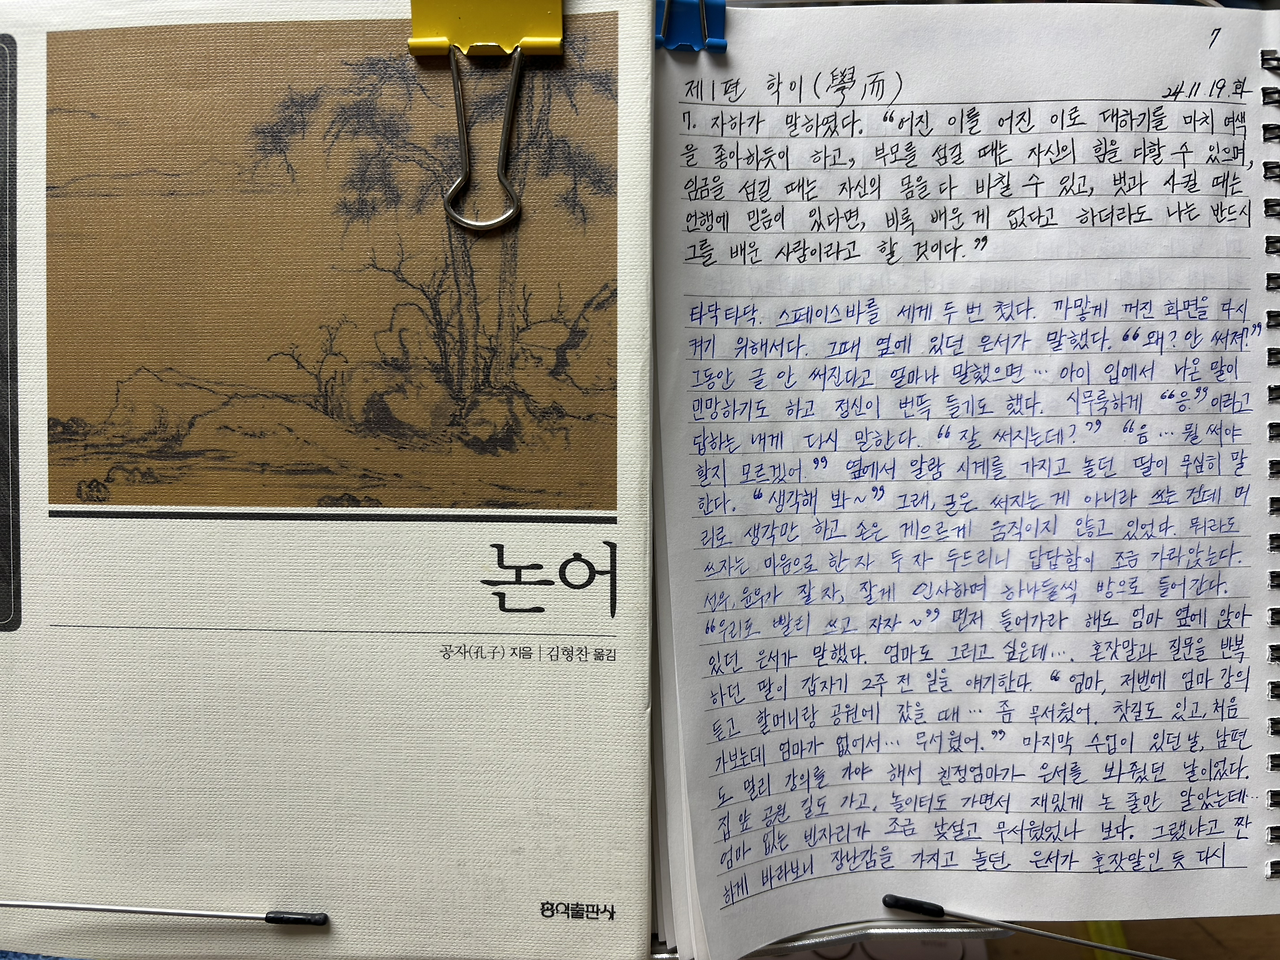 논어
공자(孔子) 지음 | 김형찬 옮김
홍익출판사
7
제1편 학이(學而)
24.11.19.화
7. 자하가 말하였다. "어진 이를 어진 이로 대하기를 마치 여색
을 좋아하듯이 하고, 부모를 섬길 때는 자신의 힘을 다할 수 있으며,
임금을 섬길 때는 자신의 몸을 다 바칠 수 있고, 벗과 사귈 때는
언행에 믿음이 있다면, 비록 배운 게 없다고 하더라도 나는 반드시
그를 배운 사람이라고 할 것이다."
타닥타닥. 스페이스바를 세게 두 번 쳤다. 까맣게 꺼진 화면을 다시
켜기 위해서다. 그때 옆에 있던 은서가 말했다. "왜? 안 써져?"
그동안 글 안 써진다고 얼마나 말했으면… 아이 입에서 나온 말이
민망하기도 하고 정신이 번뜩 들기도 했다. 시무룩하게 "응."이라고
답하는 내게 다시 말한다. "잘 써지는데?" "음… 뭘 써야
할지 모르겠어." 옆에서 알람 시계를 가지고 놀던 딸이 무심히 말
한다. "생각해 봐~" 그래, 글은 써지는 게 아니라 쓰는 건데 머
리로 생각만 하고 손은 게으르게 움직이지 않고 있었다. 뭐라도
쓰자는 마음으로 한 자 두 자 두드리니 답답함이 조금 가라앉는다.
선우, 윤우가 잘 자, 잘게 인사하며 하나둘씩 방으로 들어간다.
"우리도 빨리 쓰고 자자~" 먼저 들어가라 해도 엄마 옆에 앉아
있던 은서가 말했다. 엄마도 그러고 싶은데…. 혼잣말과 질문을 반복
하던 딸이 갑자기 2주 전 일을 얘기한다. "엄마, 저번에 엄마 강의
듣고 할머니랑 공원에 갔을 때… 좀 무서웠어. 찻길도 있고, 처음
가보는데 엄마가 없어서… 무서웠어." 마지막 수업이 있던 날, 남편
도 멀리 강의를 가야 해서 친정엄마가 은서를 봐줬던 날이었다.
집 앞 공원 길도 가고, 놀이터도 가면서 재밌게 논 줄만 알았는데…
엄마 없는 빈자리가 조금 낯설고 무서웠었나 보다. 그랬냐고 짠
하게 바라보니 장난감을 가지고 놀던 은서가 혼잣말인 듯 다시